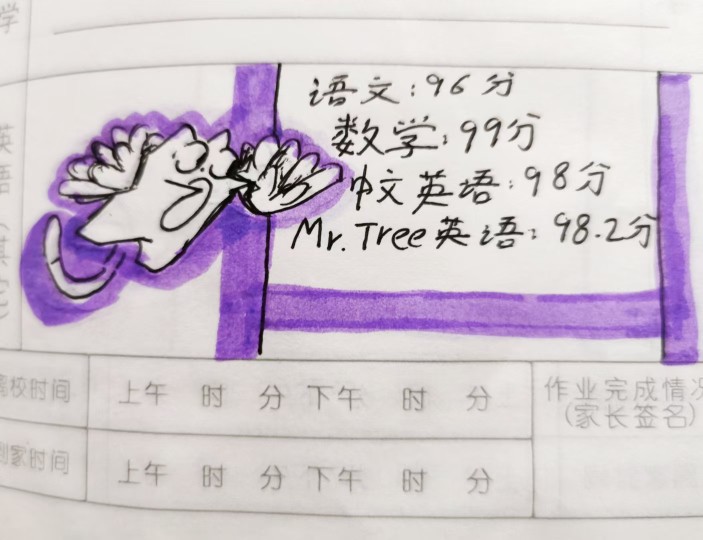 学
语文:96分
数学:99分
中文英语:98分
Mr.Tree英语:98.2分
英语
离校时间 上午 时 分 下午 时 分
作业完成情况
(家长签名)
到家时间 上午 时 分 下午 时 分